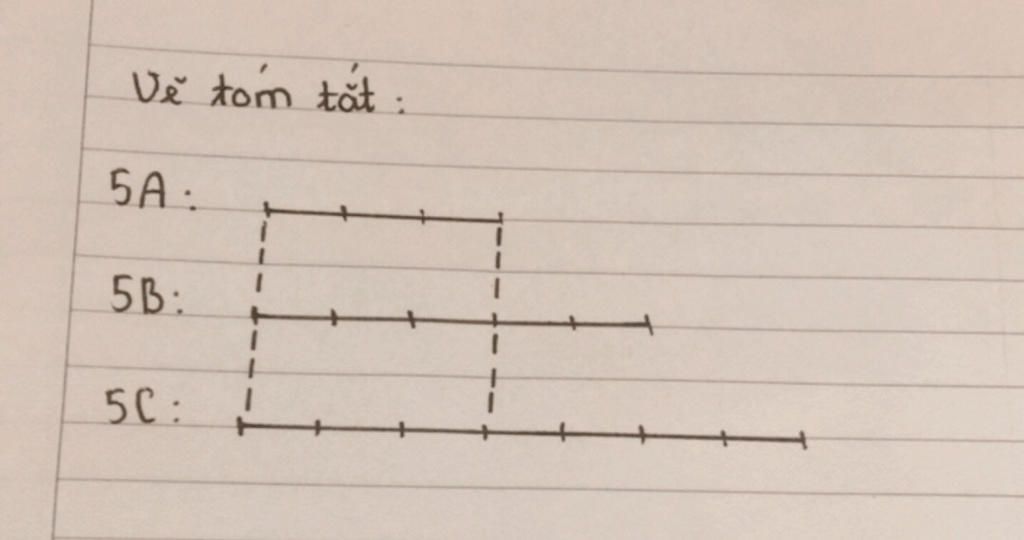 Vẽ tóm tắt :
5A :
5B :
5C :